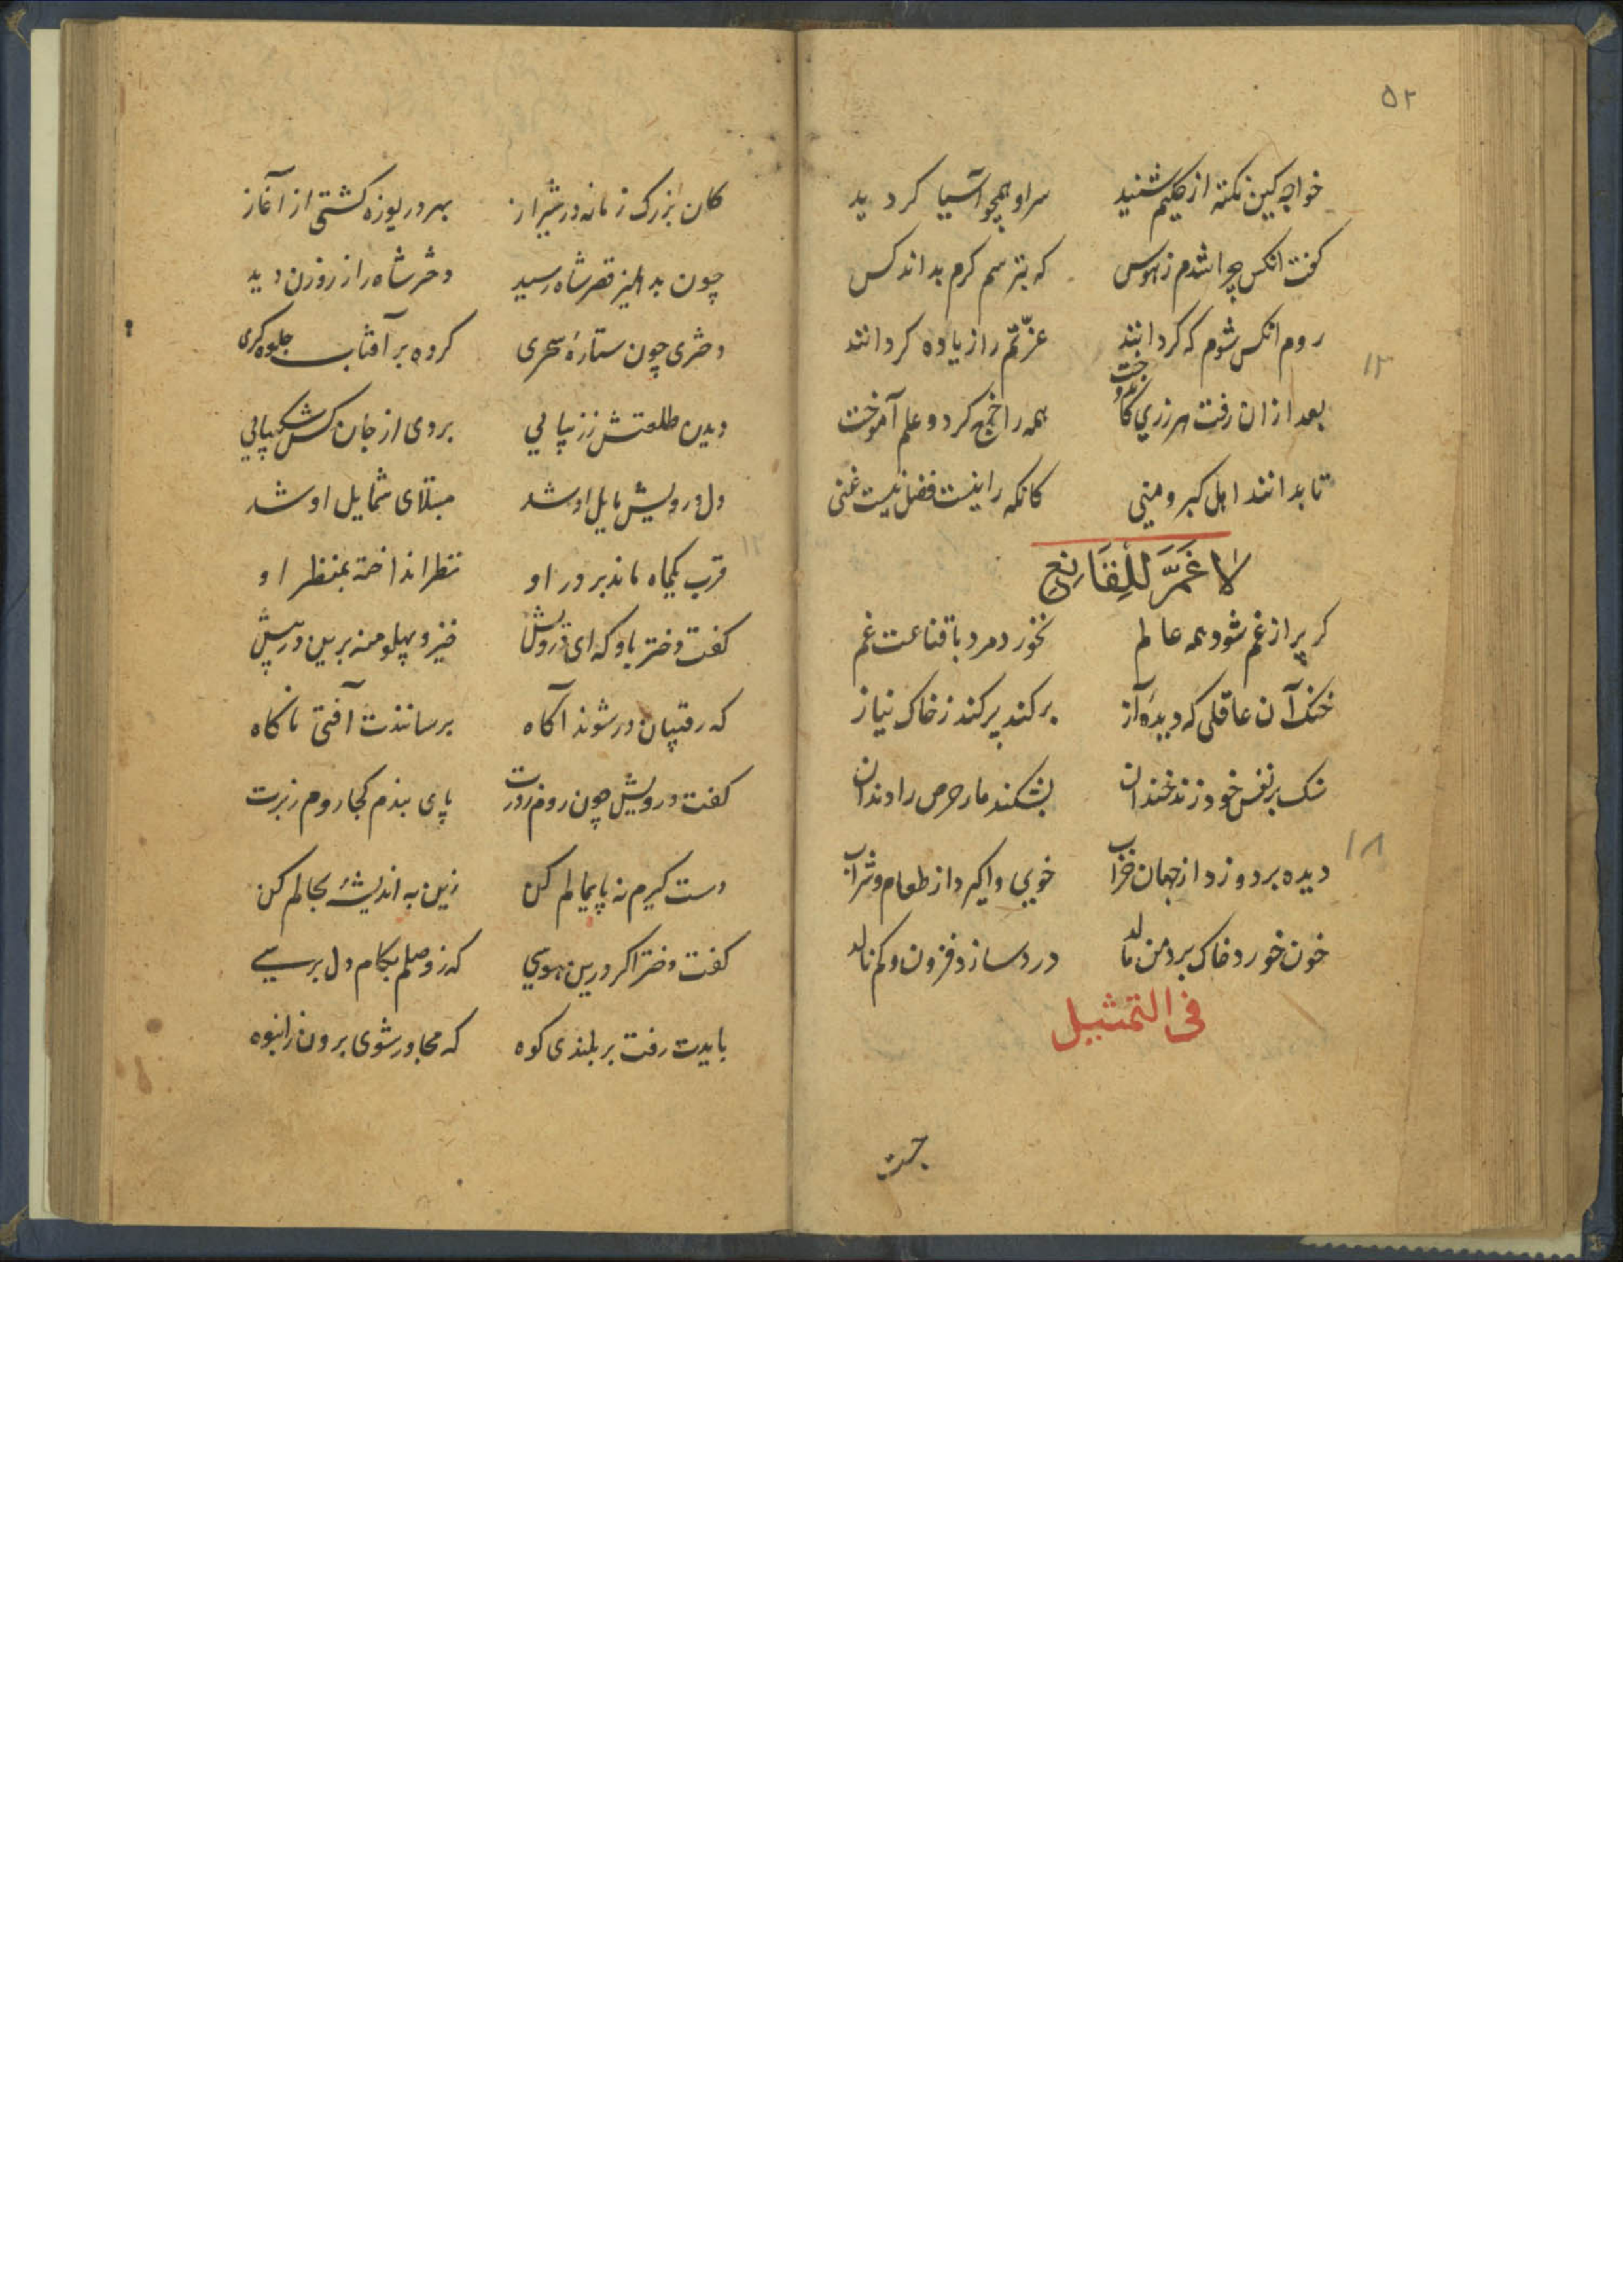 ۵۲
خواجه کین نکته از حکیم شنید سر او همچو آسیا کردید
کفت انکس چرا شدم ز هوس که بترسم کرم بداند کس
روم انکس شوم که کردانند عزّتم را زیاده کردانند
۱۳
بعد از ان رفت هر زری کاندوخت همه را خرج کرد و علم آموخت
تا بدانند اهل کبر و منی کانکه را نیست فضل نیست غنی
لا غَمَّ لِلقَانِعِ
کر پر از غم شود همه عالم نخورد مرد با قناعت غم
خنک آن عاقلی که دیدهٔ آز برکند پر کند ز خاک نیاز
سنک بر نفس خود زند خندان بشکند مار حرص را دندان
۱۸
دیده بردوزد از جهان خراب خوی واکیرد از طعام و شراب
خون خورد خاک بر دهن مالد درد سازد فزون و کم نالد
فی التمثیل
کان بزرک زمانه در شیراز بهر دریوزه کشتی از آغاز
چون بدهلیز قصر شاه رسید دختر شاه را ز روزن دید
دختری چون ستارهٔ سحری کرده بر آفتاب جلوه کری
دیدن طلعتش ز زیبایی بردی از جان کس شکیبایی
دل درویش مایل او شد مبتلای شمایل او شد
۱۲
قرب یکماه ماند بر در او نظر انداخته بمنظر او
کفت دختر باو که ای درویش خیز و پهلو منه برین در پیش
که رقیبان در شوند آکاه برسانندت آفتی ناکاه
کفت درویش چون روم ز درت پای بندم کجا روم ز برت
دست کیرم نه پایمالم کن زین به اندیشهٔ بحالم کن
کفت دختر اکر درین هوسی که ز وصلم بکام دل برسی
بایدت رفت بر بلندی کوه که مجاور شوی برون ز انبوه